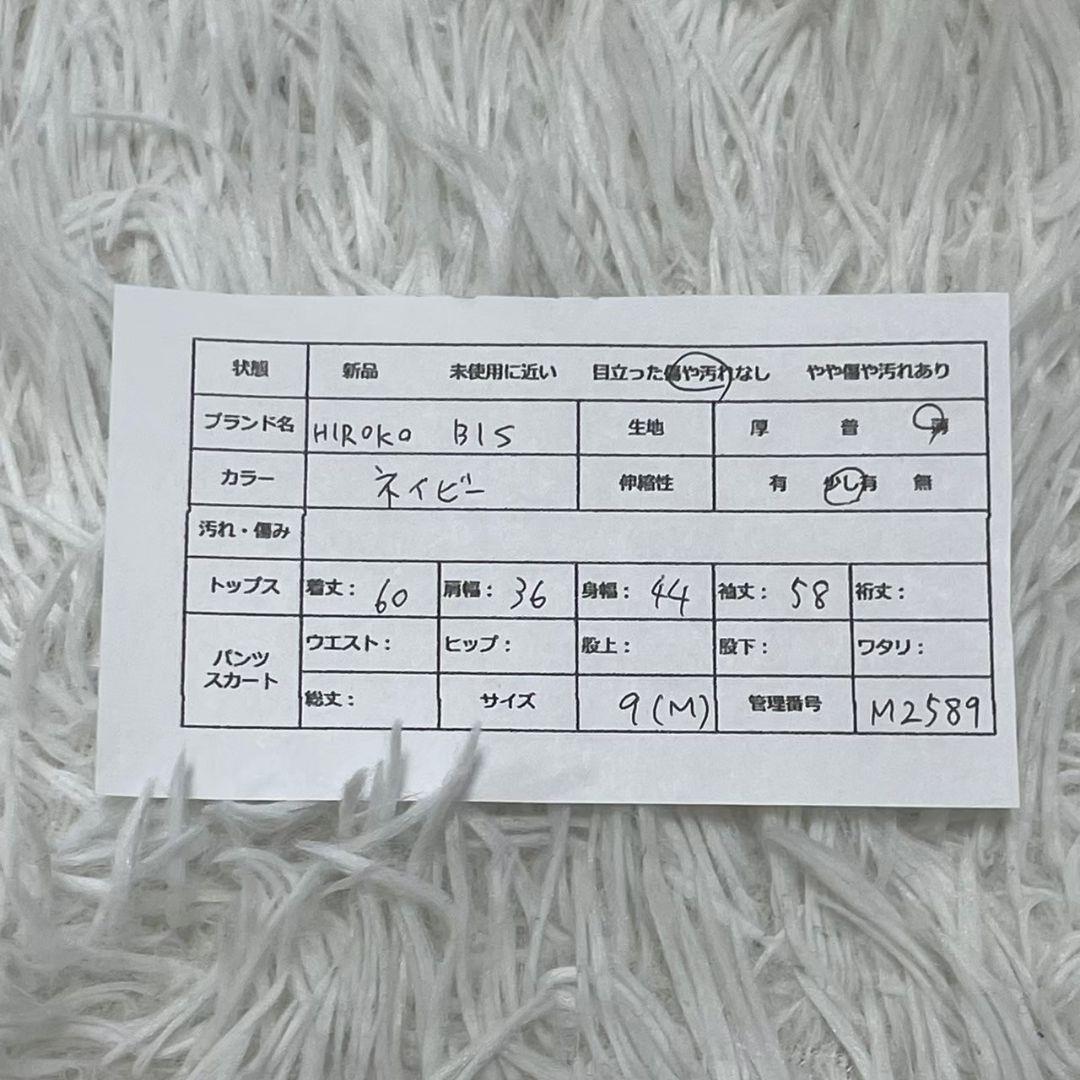 状態 新品 未使用に近い 目立った傷や汚れなし やや傷や汚れあり
ブランド名 HIROKO BIS 生地 厚 普 薄
カラー ネイビー 伸縮性 有 少し有 無
汚れ・傷み
トップス 着丈: 60 肩幅: 36 身幅: 44 袖丈: 58 裄丈:
パンツ スカート ウエスト: ヒップ: 股上: 股下: ワタリ:
総丈: サイズ 9(M) 管理番号 M2589